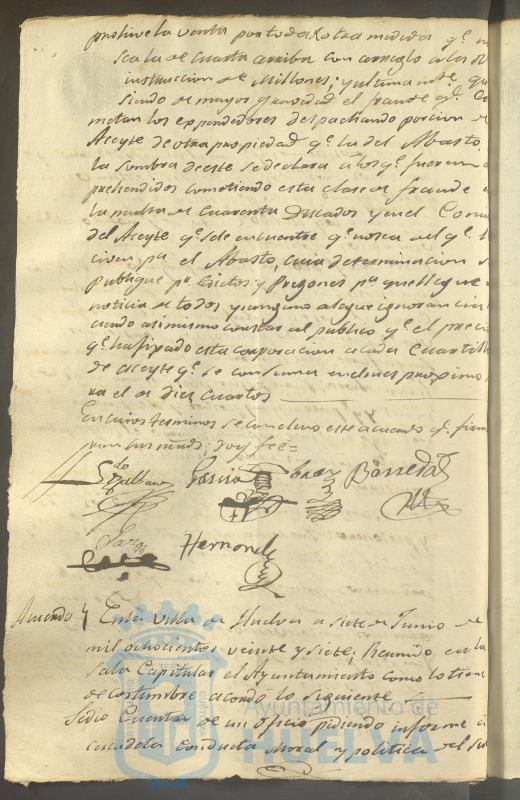 prohive la venta por toda otra medida q.e no
sea la de cuarta arriba con arreglo a las
instruccion de Millones; y ultimam.te que
siendo de mayor gravedad el fraude q.e co
metan los expendedores despachando porcion de
Aceyte de otra propiedad q.e la del Abasto,
la sombra de este se declara a los q.e fueren a
prehendidos cometiendo esta clase de fraude
la multa de cuarenta Ducados y en el Comiso
del Aceyte q.e se le encuentre q.e no sea del q.e
p.a el Abasto, cuia determinacion se
publique p.r Edictos y Pregones p.a que llegue a
noticia de todos y ninguno alegue ignorancia
ciendo asimismo constar al publico q.e el precio
q.e ha fijado esta corporacion a cada Cuartillo
de aceyte q.e se consuma en el mes proximo
es el de diez cuartos
En cuios terminos se concluyo este acuerdo q.e firma
ron sus mrds; doy fee=
Garcia Baez Barreda
Hernandez
Acuerdo } En la Villa de Huelva a siete de Junio de
mil ochocientos veinte y siete; Reunido en la
Sala Capitular el Ayuntamiento como lo tiene
de costumbre acordo lo siguiente
Se dio Cuenta de un oficio pidiendo informe a
cerca de la conducta Moral y politica del
Ayuntamiento de
HUELVA